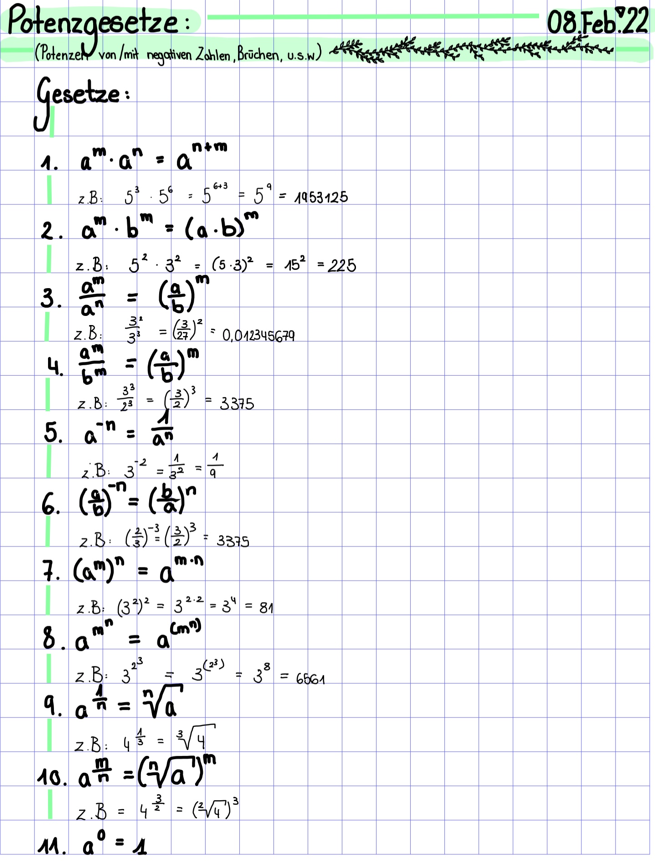 Potenzgesetze: 08.Feb.'22
(Potenzen von/mit negativen Zahlen, Brüchen, u.s.w)
Gesetze:
1. aᵐ · aⁿ = aⁿ⁺ᵐ
z.B: 5³ · 5⁶ = 5⁶⁺³ = 5⁹ = 1953125
2. aᵐ · bᵐ = (a · b)ᵐ
z.B: 5² · 3² = (5·3)² = 15² = 225
3. aᵐ/aⁿ = (a/b)ᵐ
z.B: 3²/3³ = (3/27)² = 0,012345679
4. aᵐ/bᵐ = (a/b)ᵐ
z.B: 3³/2³ = (3/2)³ = 3375
5. a⁻ⁿ = 1/aⁿ
z.B: 3⁻² = 1/3² = 1/9
6. (a/b)⁻ⁿ = (b/a)ⁿ
z.B: (2/3)⁻³ = (3/2)³ = 3375
7. (aᵐ)ⁿ = aᵐ·ⁿ
z.B: (3²)² = 3²·² = 3⁴ = 81
8. a^m^n = a^(mⁿ)
z.B: 3^2^3 = 3^(2³) = 3⁸ = 6561
9. a^1/n = ⁿ√a
z.B: 4^1/3 = ³√4
10. a^m/n = (ⁿ√a)ᵐ
z.B = 4^3/2 = (²√4)³
11. a⁰ = 1